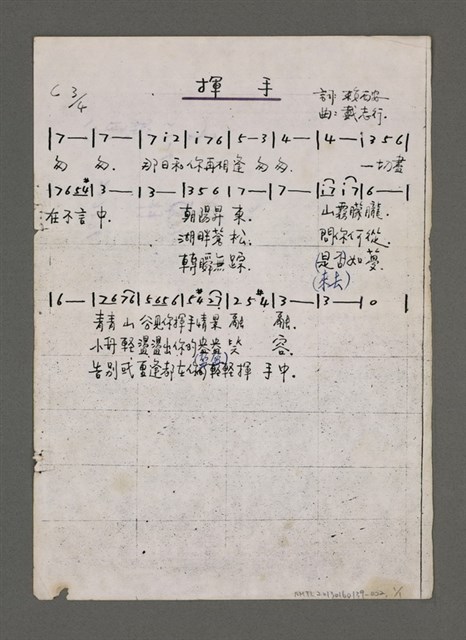 揮手
C 3/4
詞:賴西安
曲:戴志行.
|7—|7—|7 i 2|i 7 6|5—3|4—|4—|3 5 6
匆 匆. 那日和你再相逢匆匆. 一切盡
|7 6 5 4#|3—|3—|3 5 6|7—|7—|i 7 i 7|6—|
在不言中. 朝陽昇東. 山霧朦朧.
湖畔蒼松. 問你何從.
轉瞬無踪. 是否如夢.
(未去)
|6—|2 6 7 6|5 6 5 6|5 4# 2 7|2 5 4#|3—|3—|0 |
青青山谷見你揮手情景融融.
小舟輕盪盪出你的盈盈笑容.
告別或重逢都在你輕輕揮手中.
NMTL20130160159-002, 1/1